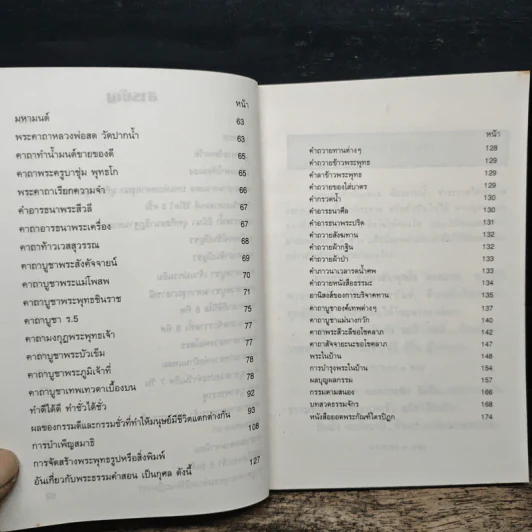 หน้า
มหามนต์ 63
พระคาถาหลวงพ่อสด วัดปากน้ำ 63
คาถาทำน้ำมนต์ขายของดี 65
คาถาพระครูบาชุ่ม พุทธโก 65
พระคาถาเรียกความจำ 66
คำอาราธนาพระสีวลี 67
คำอาราธนาพระเครื่อง 67
คาถาท้าวเวสสุวรรณ 68
คาถาบูชาพระสังคัจจายน์ 69
คาถาบูชาพระแม่โพสพ 70
คาถาบูชาพระพุทธชินราช 71
คาถาบูชา ร.5 75
คาถามงกุฎพระพุทธเจ้า 77
คาถาบูชาพระบัวเข็ม 78
คาถาบูชาพระภูมิเจ้าที่ 78
คาถาบูชาเทพเทวดาเบื้องบน 92
ทำดีได้ดี ทำชั่วได้ชั่ว 93
ผลของกรรมดีและกรรมชั่วที่ทำให้มนุษย์มีชีวิตแตกต่างกัน 108
การบำเพ็ญสมาธิ
การจัดสร้างพระพุทธรูปหรือสิ่งพิมพ์
อันเกี่ยวกับพระธรรมคำสอน เป็นกุศล ดังนี้ 127
หน้า
คำถวายทานต่างๆ 128
คำถวายข้าวพระพุทธ 129
คำลาข้าวพระพุทธ 129
คำถวายของใส่บาตร 129
คำกรวดน้ำ 130
คำอาราธนาศีล 130
คำอาราธนาพระปริต 131
คำถวายสังฆทาน 132
คำถวายผ้ากฐิน 132
คำถวายผ้าป่า 132
คำภาวนาเวลารดน้ำศพ 133
คำถวายหนังสือธรรมะ 134
อานิสงส์ของการบริจาคทาน 135
คำถาบูชาองค์เทพต่างๆ 137
คาถาบูชาแม่นางกวัก 140
คาถาพระสีวะลีขอโชคลาภ 142
คาถาสัจจายะนะขอโชคลาภ 147
พระในบ้าน 148
การบำรุงพระในบ้าน 154
ผลบุญผลกรรม 157
กรรมตามสนอง 166
บทสวดธรรมจักร 168
หนังสือยอดพระกัณฑ์ไตรปิฎก 174